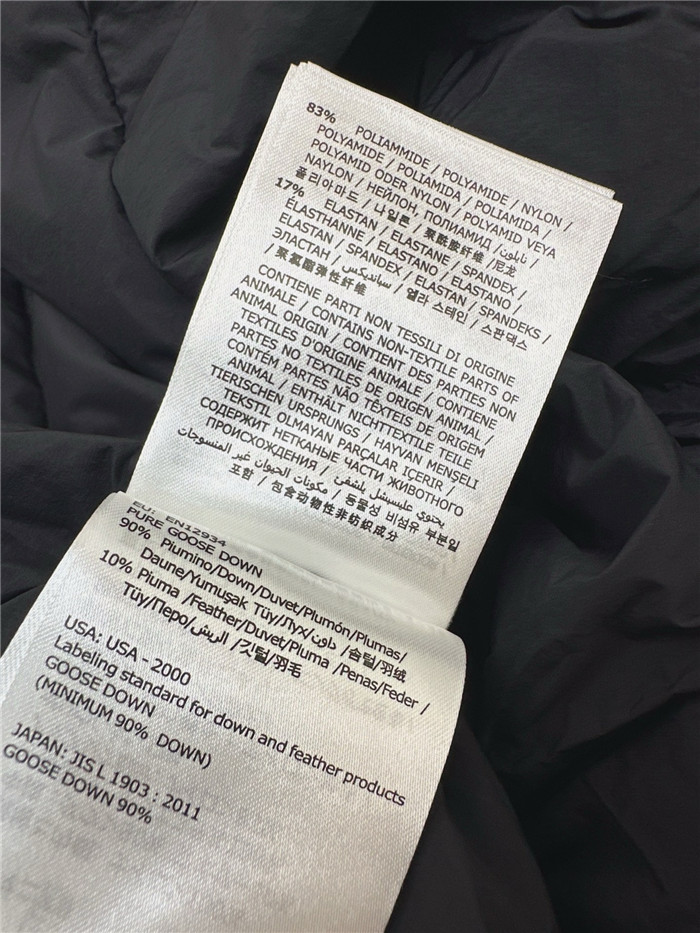 83% POLIAMMIDE / POLYAMIDE / NYLON /
POLYAMIDE / POLIAMIDA / POLIAMIDA /
POLYAMID ODER NYLON / POLYAMID VEYA
NAYLON / НЕЙЛОН, ПОЛИАМИД / نايلون /
폴리아마드 / 나일론 / 聚酰胺纤维 /尼龙
17% ELASTAN / ELASTANE / SPANDEX /
ÉLASTHANNE / ELASTANO / ELASTANO /
ELASTAN / SPANDEX / ELASTAN / SPANDEKS /
ЭЛАСТАН / سباندكس / 엘라 스테인 / 스판덱스
/ 聚氨酯弹性纤维
CONTIENE PARTI NON TESSILI DI ORIGINE
ANIMALE / CONTAINS NON-TEXTILE PARTS OF
ANIMAL ORIGIN / CONTIENT DES PARTIES NON
TEXTILES D'ORIGINE ANIMALE / CONTIENE
PARTES NO TEXTILES DE ORIGEN ANIMAL /
CONTÉM PARTES NÃO TÊXTEIS DE ORIGEM
ANIMAL / ENTHÄLT NICHTTEXTILE TEILE
TIERISCHEN URSPRUNGS / HAYVAN MENŞELİ
TEKSTIL OLMAYAN PARÇALAR IÇERIR /
СОДЕРЖИТ НЕТКАНЫЕ ЧАСТИ ЖИВОТНОГО
ПРОИСХОЖДЕНИЯ / مكونات الحيوان غير المنسوجات
/ 동물성 비섬유 부분일
포함 / 包含动物性非纺织成分
EU: EN12934
PURE GOOSE DOWN
90% Piumino/Down/Duvet/Plumón/Plumas/
Daune/Yumuşak Tüy/Лух/داون /솜털/羽绒
10% Piuma /Feather/Duvet/Pluma /Penas/Feder /
Tüy/Перо/الريش /깃털/羽毛
USA: USA - 2000
Labeling standard for down and feather products
GOOSE DOWN
(MINIMUM 90% DOWN)
JAPAN: JIS L 1903 : 2011
GOOSE DOWN 90%